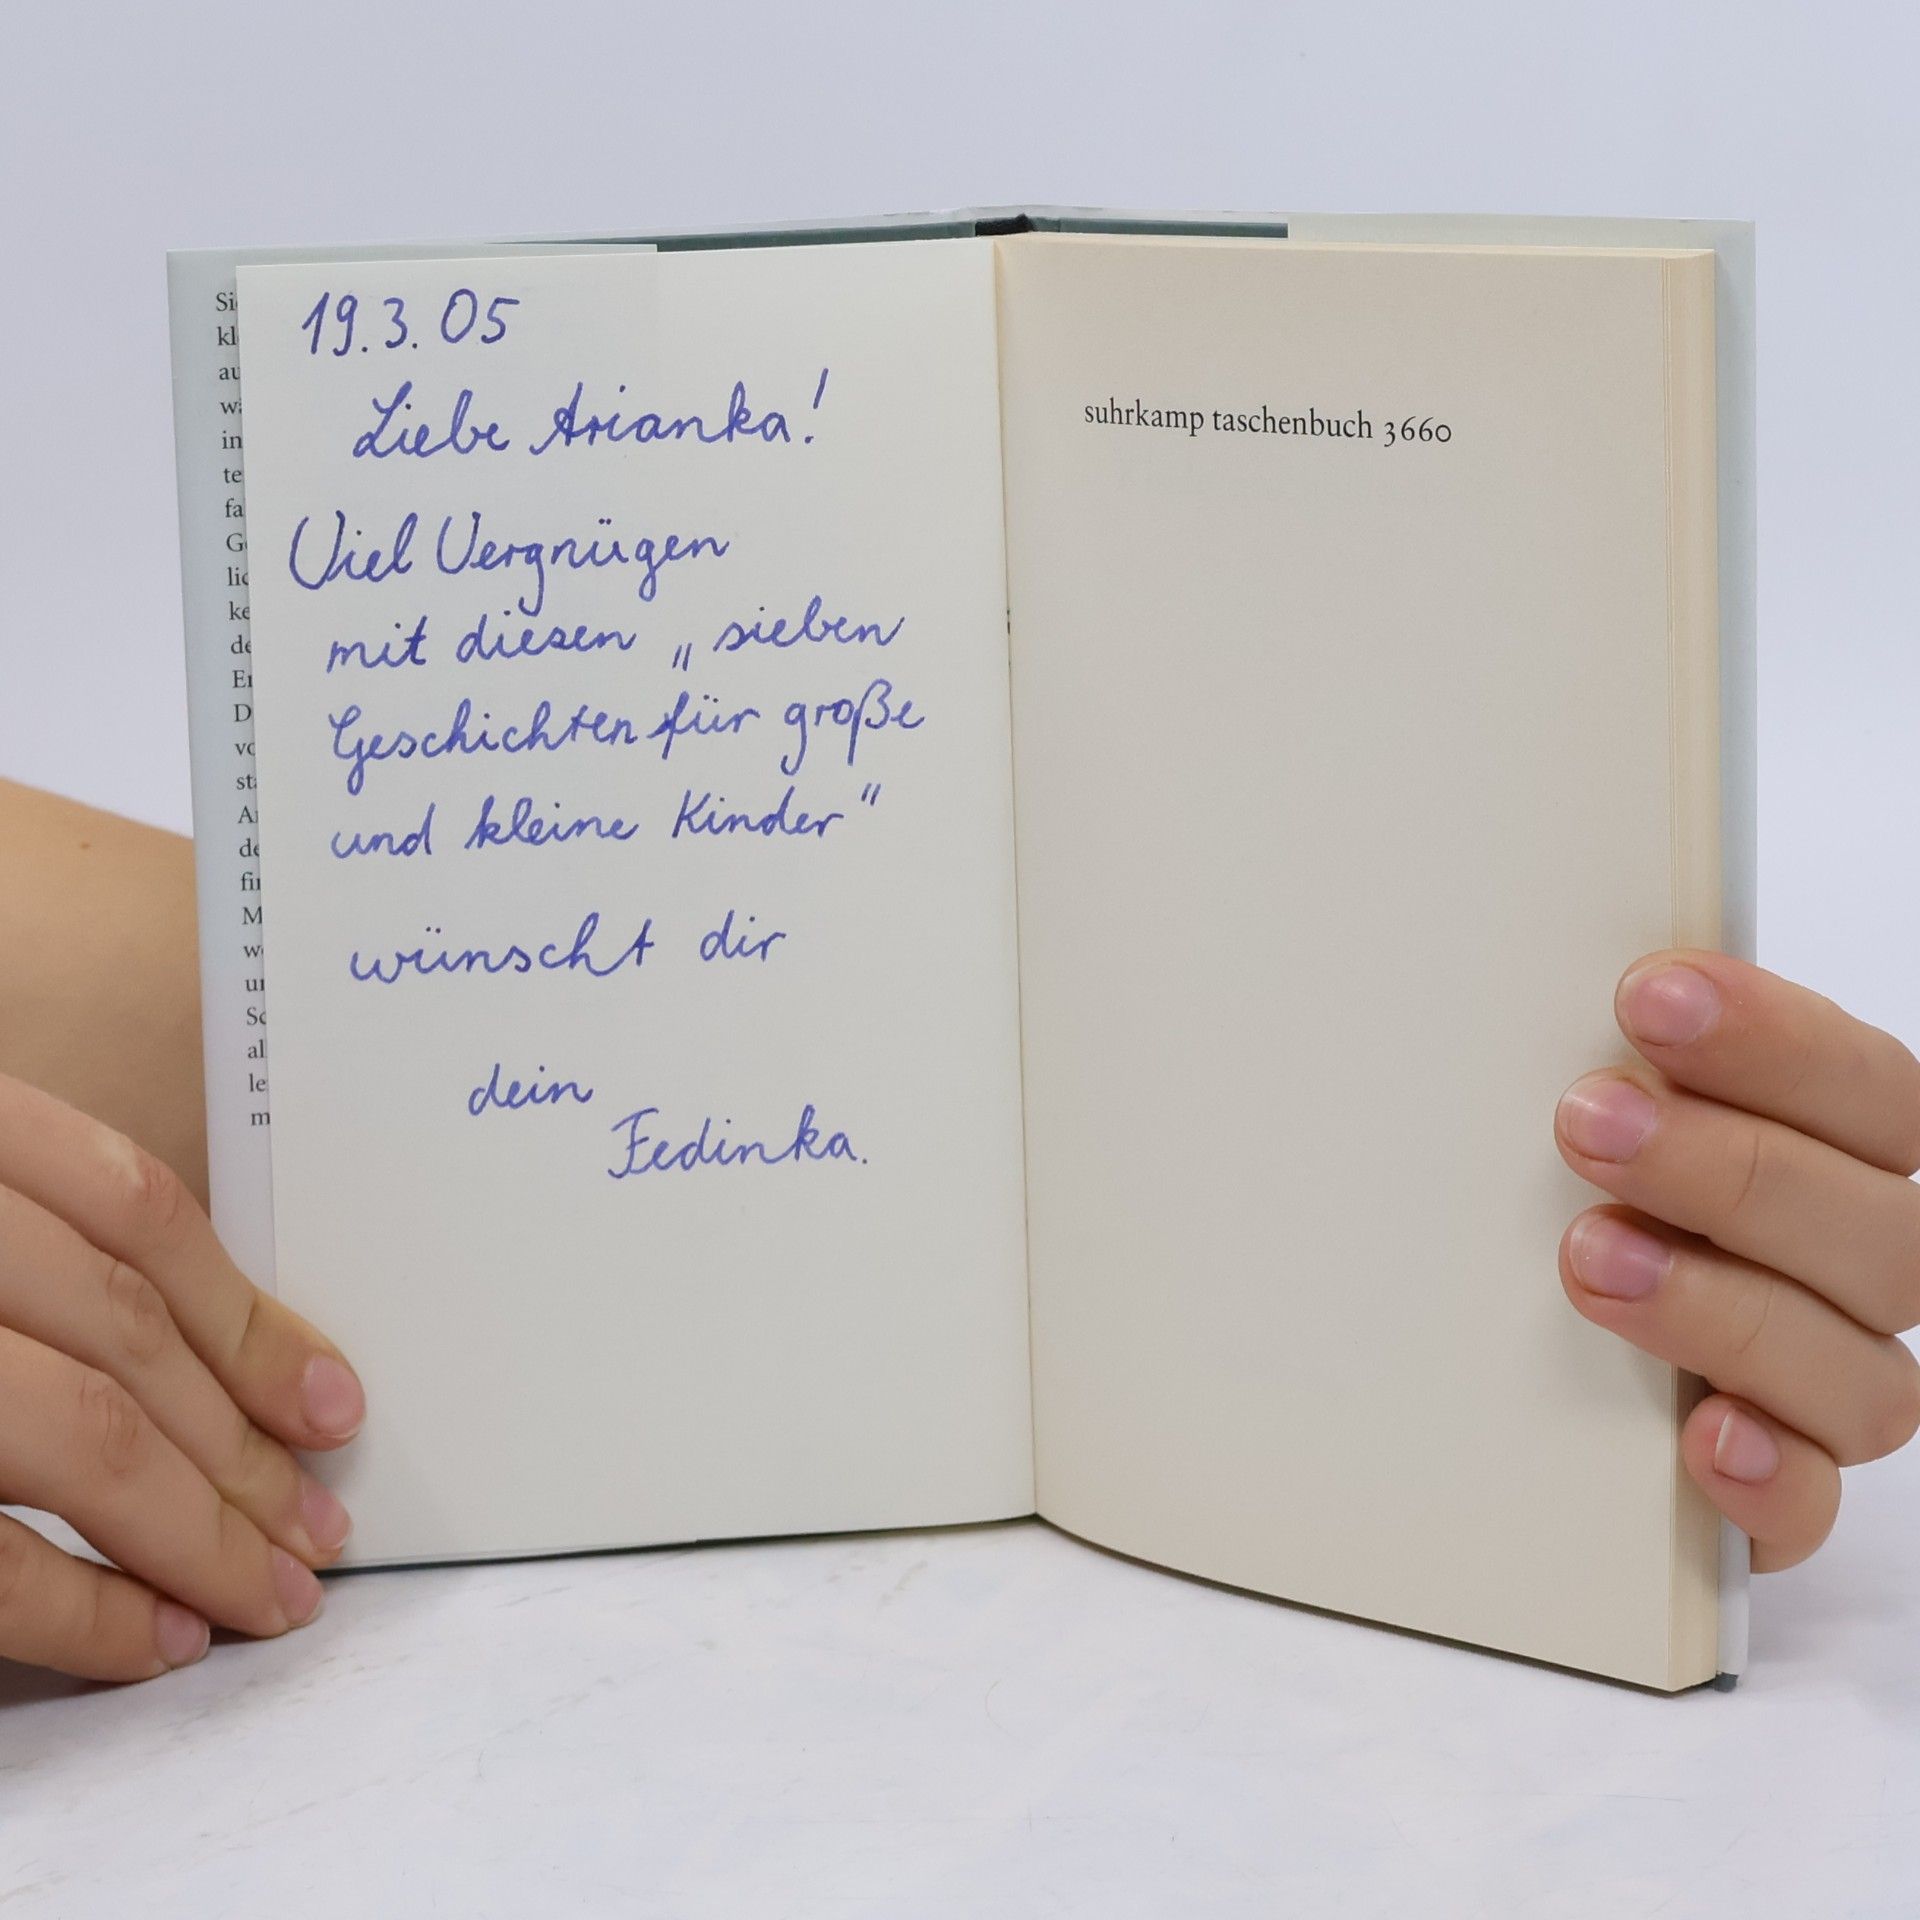 Si
kl
au
wä
in
te
fa
G
lic
ke
de
Er
D
vo
sta
A
de
fin
M
we
un
Sc
al
le
m
19.3.05
Liebe Arianka!
Viel Vergnügen
mit diesen „sieben
Geschichten für große
und kleine Kinder"
wünscht dir
dein
Fedinka.
suhrkamp taschenbuch 3660